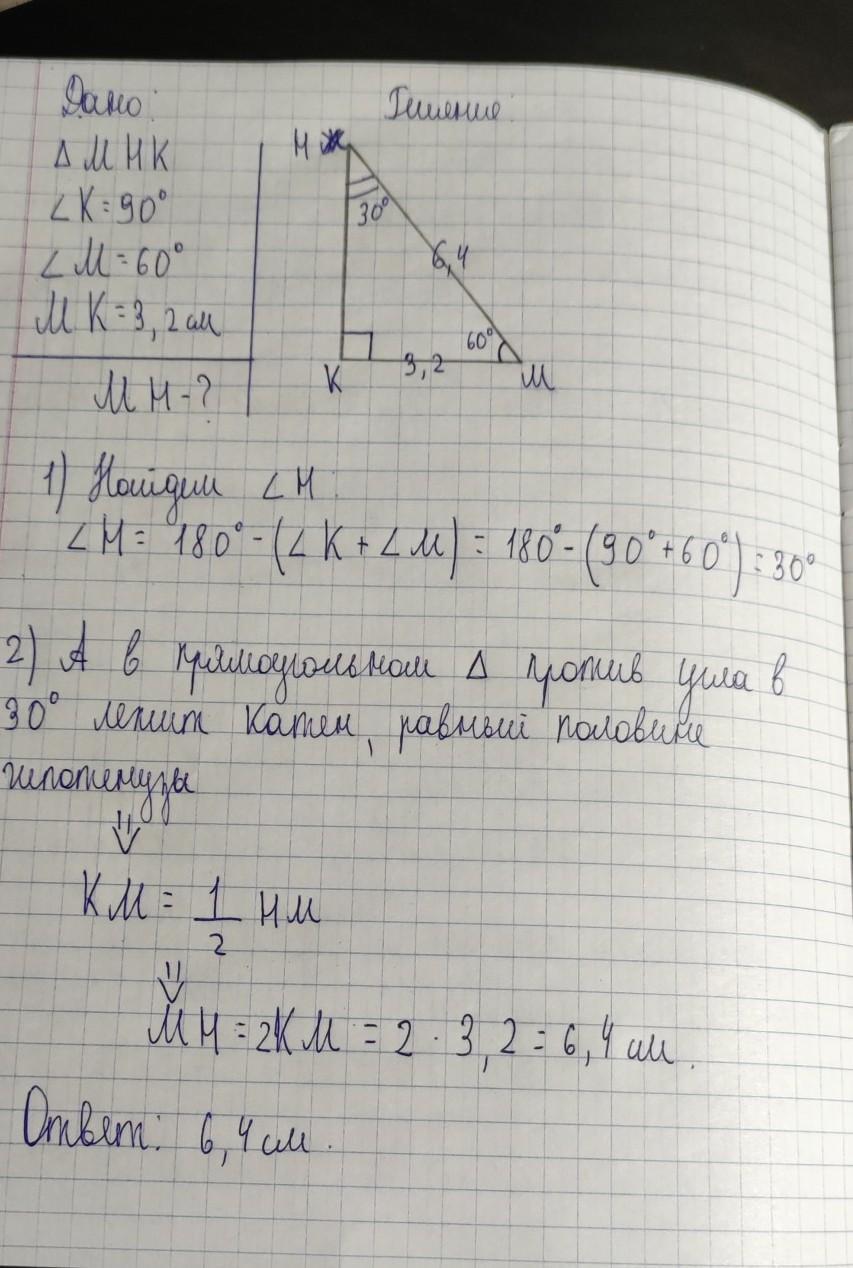 Дано:
Δ МНК
∠К=90°
∠М=60°
МК=3,2см
МН-?
Решение:
Н
30°
6,4
60°
К
3,2
М
1) Найдем ∠Н:
∠Н= 180°-(∠К+∠М)= 180°-(90°+60°)=30°
2) А в прямоугольном Δ против угла в
30° лежит катет, равный половине
гипотенузы
⇓
КМ= 1/2 НМ
⇓
МН=2КМ = 2 · 3,2 = 6,4 см.
Ответ: 6,4 см.